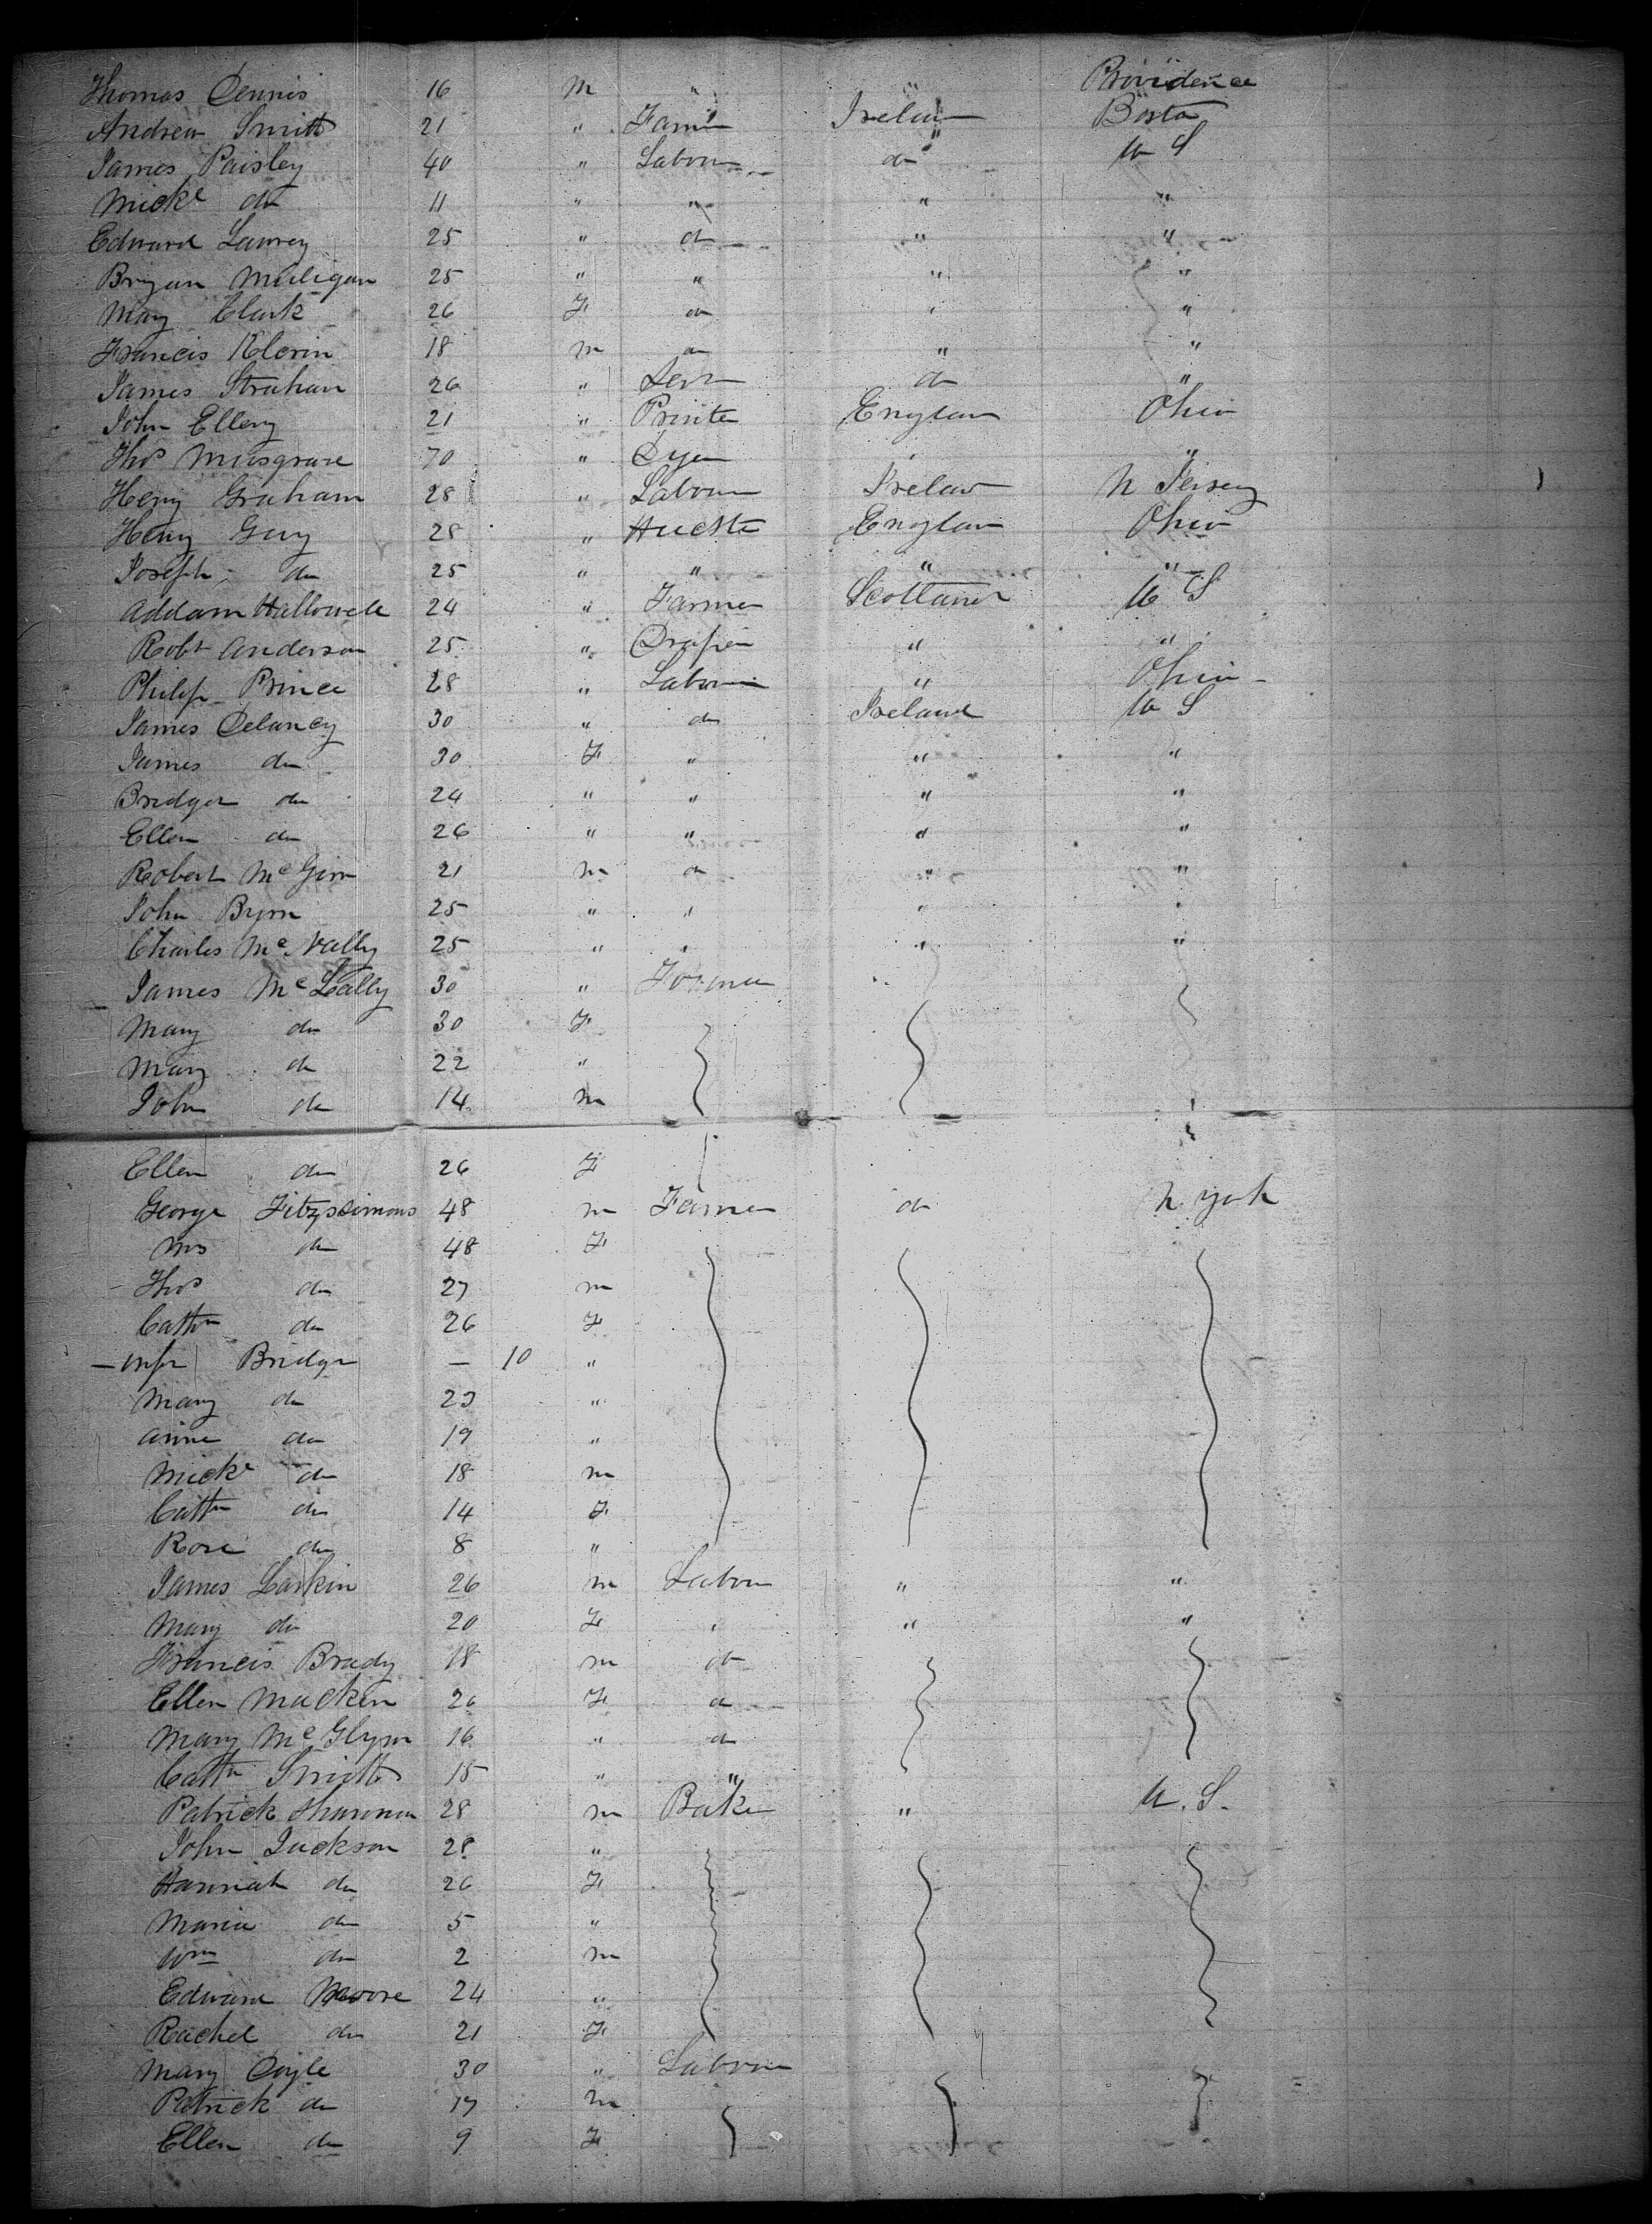 Thomas Dennis 16 m " " Providence
Andrew Smith 21 " Farm Irelan Bosto
James Paisley 40 " Labour do U S
Mickl do 11 " " " "
Edward Lawrey 25 " do " "
Bryan Muligan 25 " " " "
Mary Clark 26 F do " "
Francis 18 m do " "
James Strahan 26 " do "
John Ellery 21 " Printe Englan Ohio
Thos Musgrave 70 " Dyer " "
Heny Graham 28 " Labour Irelan N Jersey
Heny Guy 28 " Englan Ohio
Joseph do 25 " " " "
Addam Hallowell 24 " Farmer Scotland U S
Robt Anderson 25 " Draper " "
Philip Prince 28 " Labour " Ohio
James Delancy 30 " do Ireland U S
James do 30 F " " "
Bridget do 24 " " " "
Ellen do 26 " " " "
Robert McGinn 21 m do " "
John Byrn 25 " " " "
Charles McNally 25 " " " "
James McLally 30 " Farmer
Mary do 30 F
Mary do 22 "
John do 14 m
Ellen do 26 F
George Fitzssimons 48 m Farmer do N. York
Mrs do 48 F
Thos do 27 m
Cathn do 26 F
Infn Bridgt — 10 "
Mary do 23 "
Anne do 19 "
Mickl do 18 m
Cathn do 14 F
Rose do 8 "
James Larkin 26 m Labou " "
Mary do 20 F " " "
Francis Brady 18 m do
Ellen Macken 26 F do
Mary McGlynn 16 " do
Cathn Smith 15 " "
Patrick Shannon 28 m Bake " U. S.
John Jackson 28 "
Hannah do 26 F
Maria do 5 "
Wm do 2 m
Edward Moore 24 "
Rachel do 21 F
Mary Doyle 30 " Labour
Patrick do 17 m
Ellen do 9 F